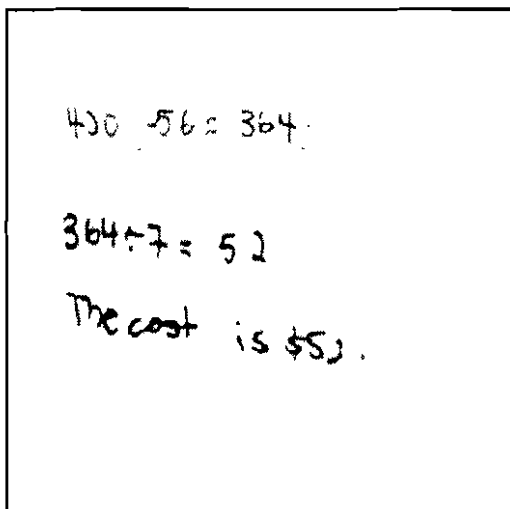 420 -56 = 364
364÷7 = 52
The cost is $52.